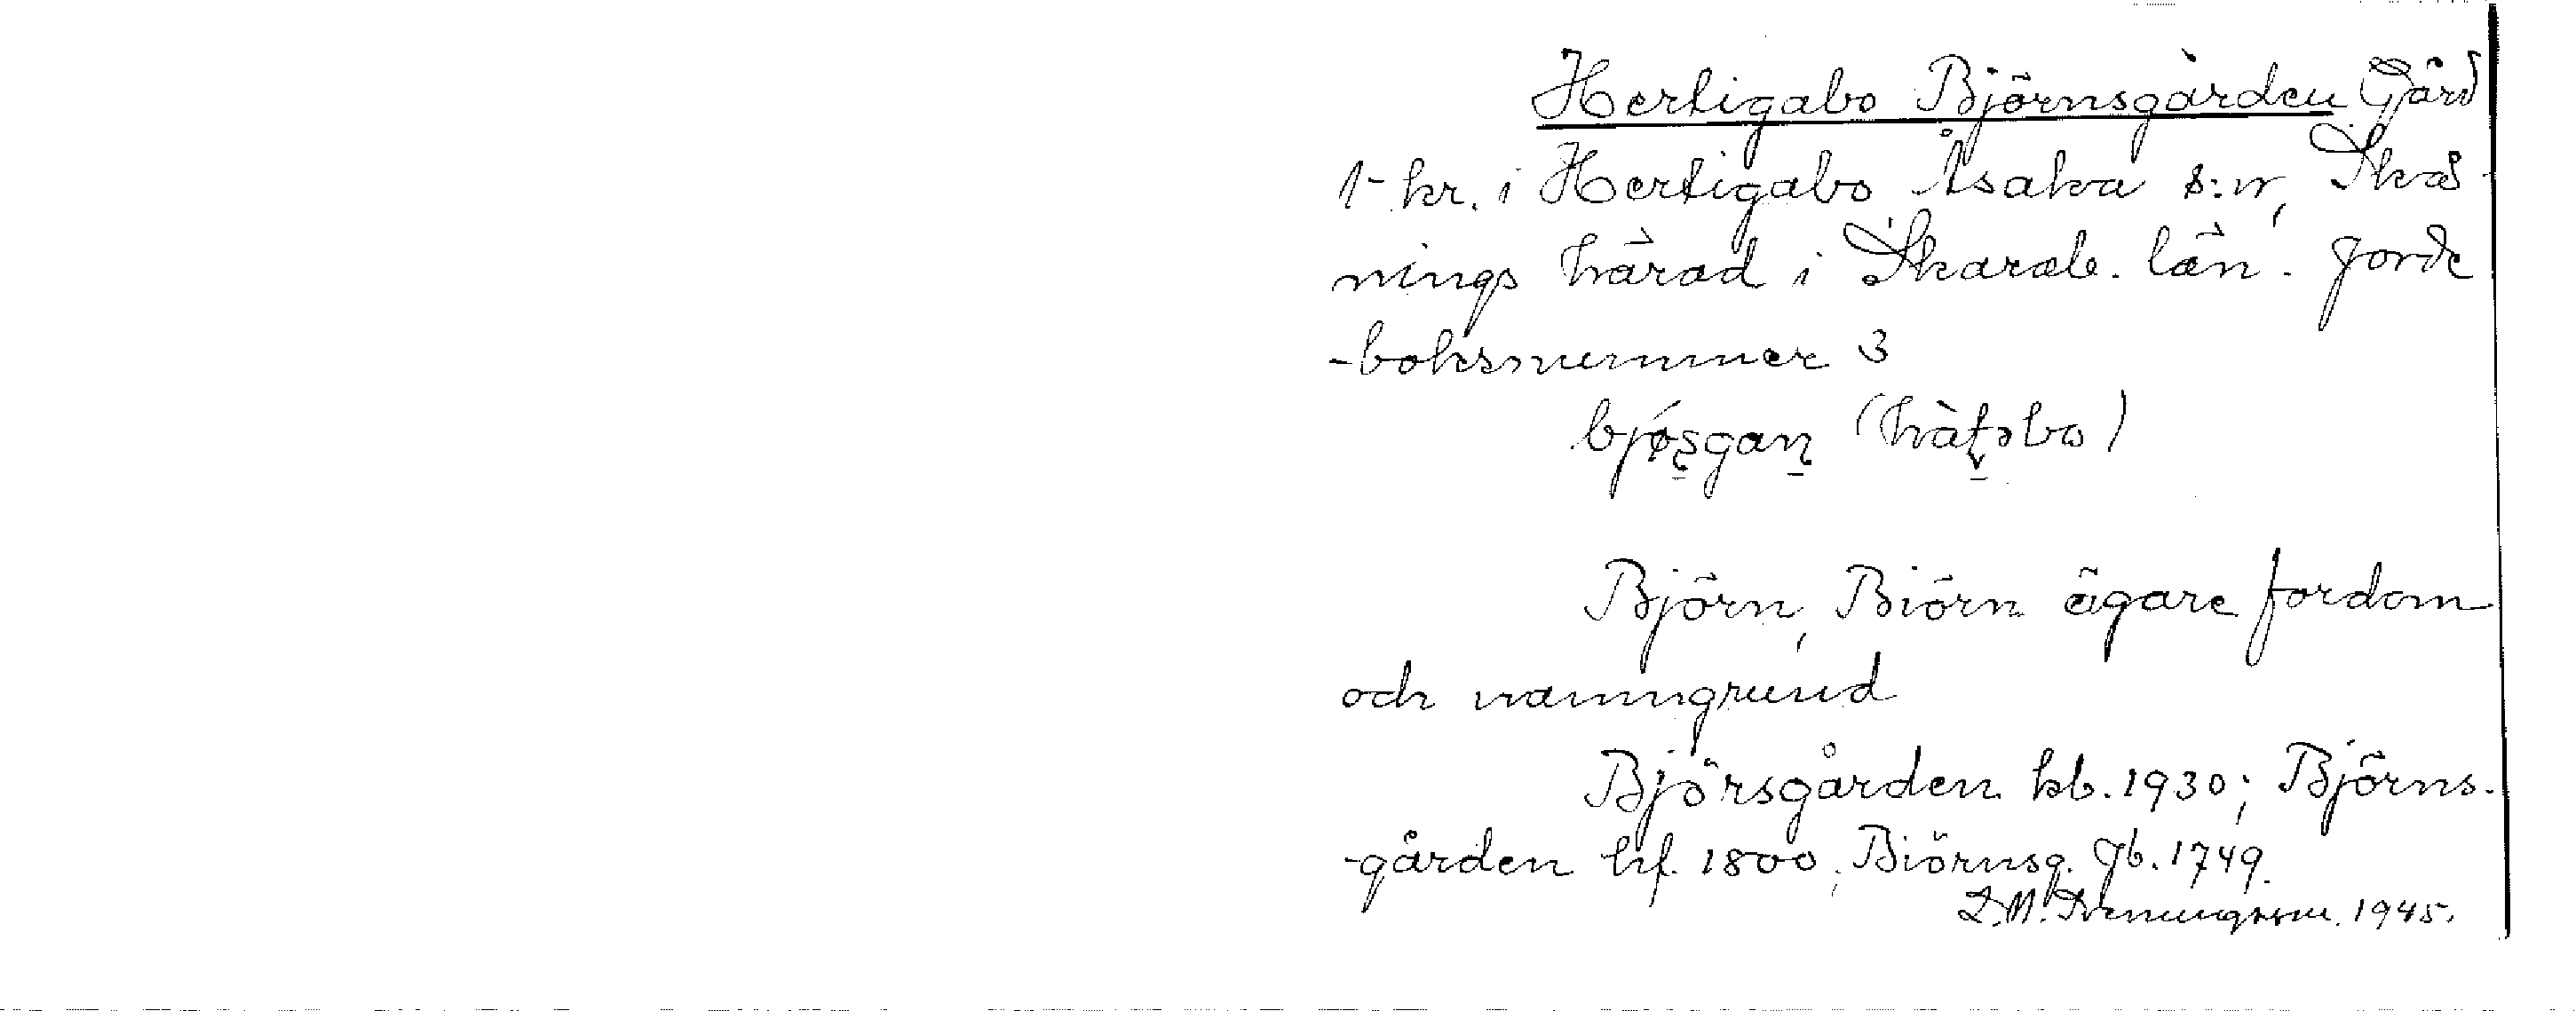 Hertigabo Björnsgården Gård
1 kr. i Hertigabo Åsaka s:n, Skå-
nings härad i Skarab. län. Jorde
-boksnummer 3
bjósgan (hàtəbo)
Björn, Biörn ägare fordom
och namngrund
Björsgården kb. 1930; Björns-
-gården hf. 1800; Biörnsg. Jb. 1749.
1945.